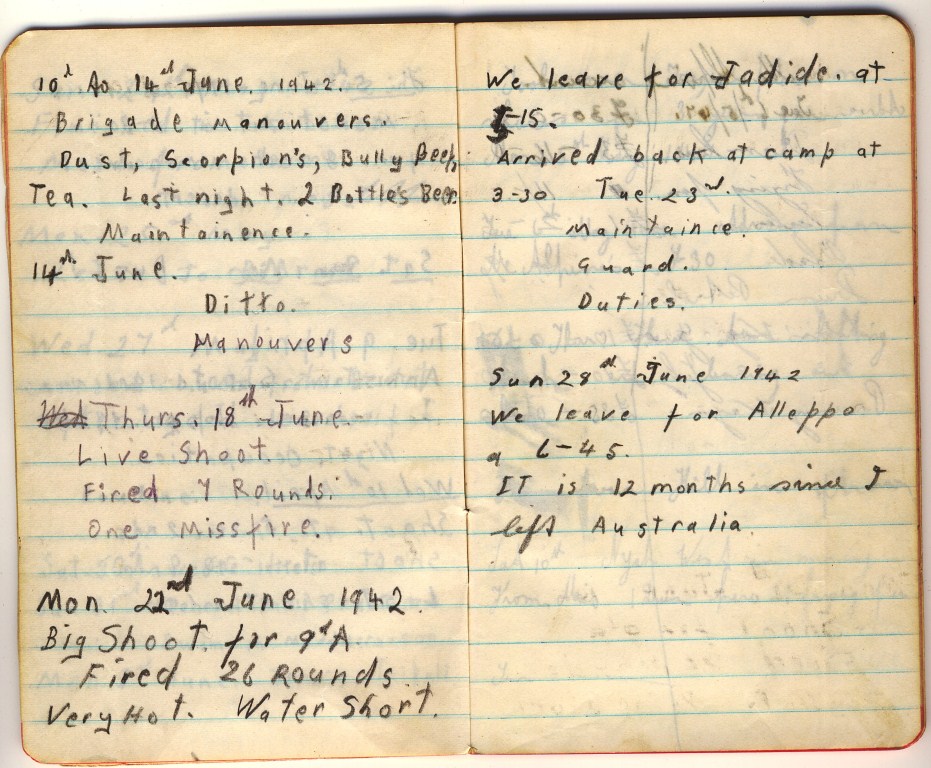 10d to 14th June, 1942.
Brigade Manouvers.
Dust, Scorpion's, Bully Beef,
Tea. Last night. 2 Bottle's Beer.
Maintainence.
14th June.
Ditto.
Manouvers
Wed Thurs. 18th June.
Live Shoot.
Fired 7 Rounds.
One Missfire.
Mon. 22nd June 1942.
Big Shoot. for 9th A.
Fired 26 Rounds.
Very Hot. Water Short.
We leave for Jadide. at
5-15.
Arrived back at camp at
3-30 Tue. 23rd.
Maintaince.
Guard.
Duties.
Sun 28th June 1942
We leave for Alleppo
a 6-45.
IT is 12 months since I
left Australia.